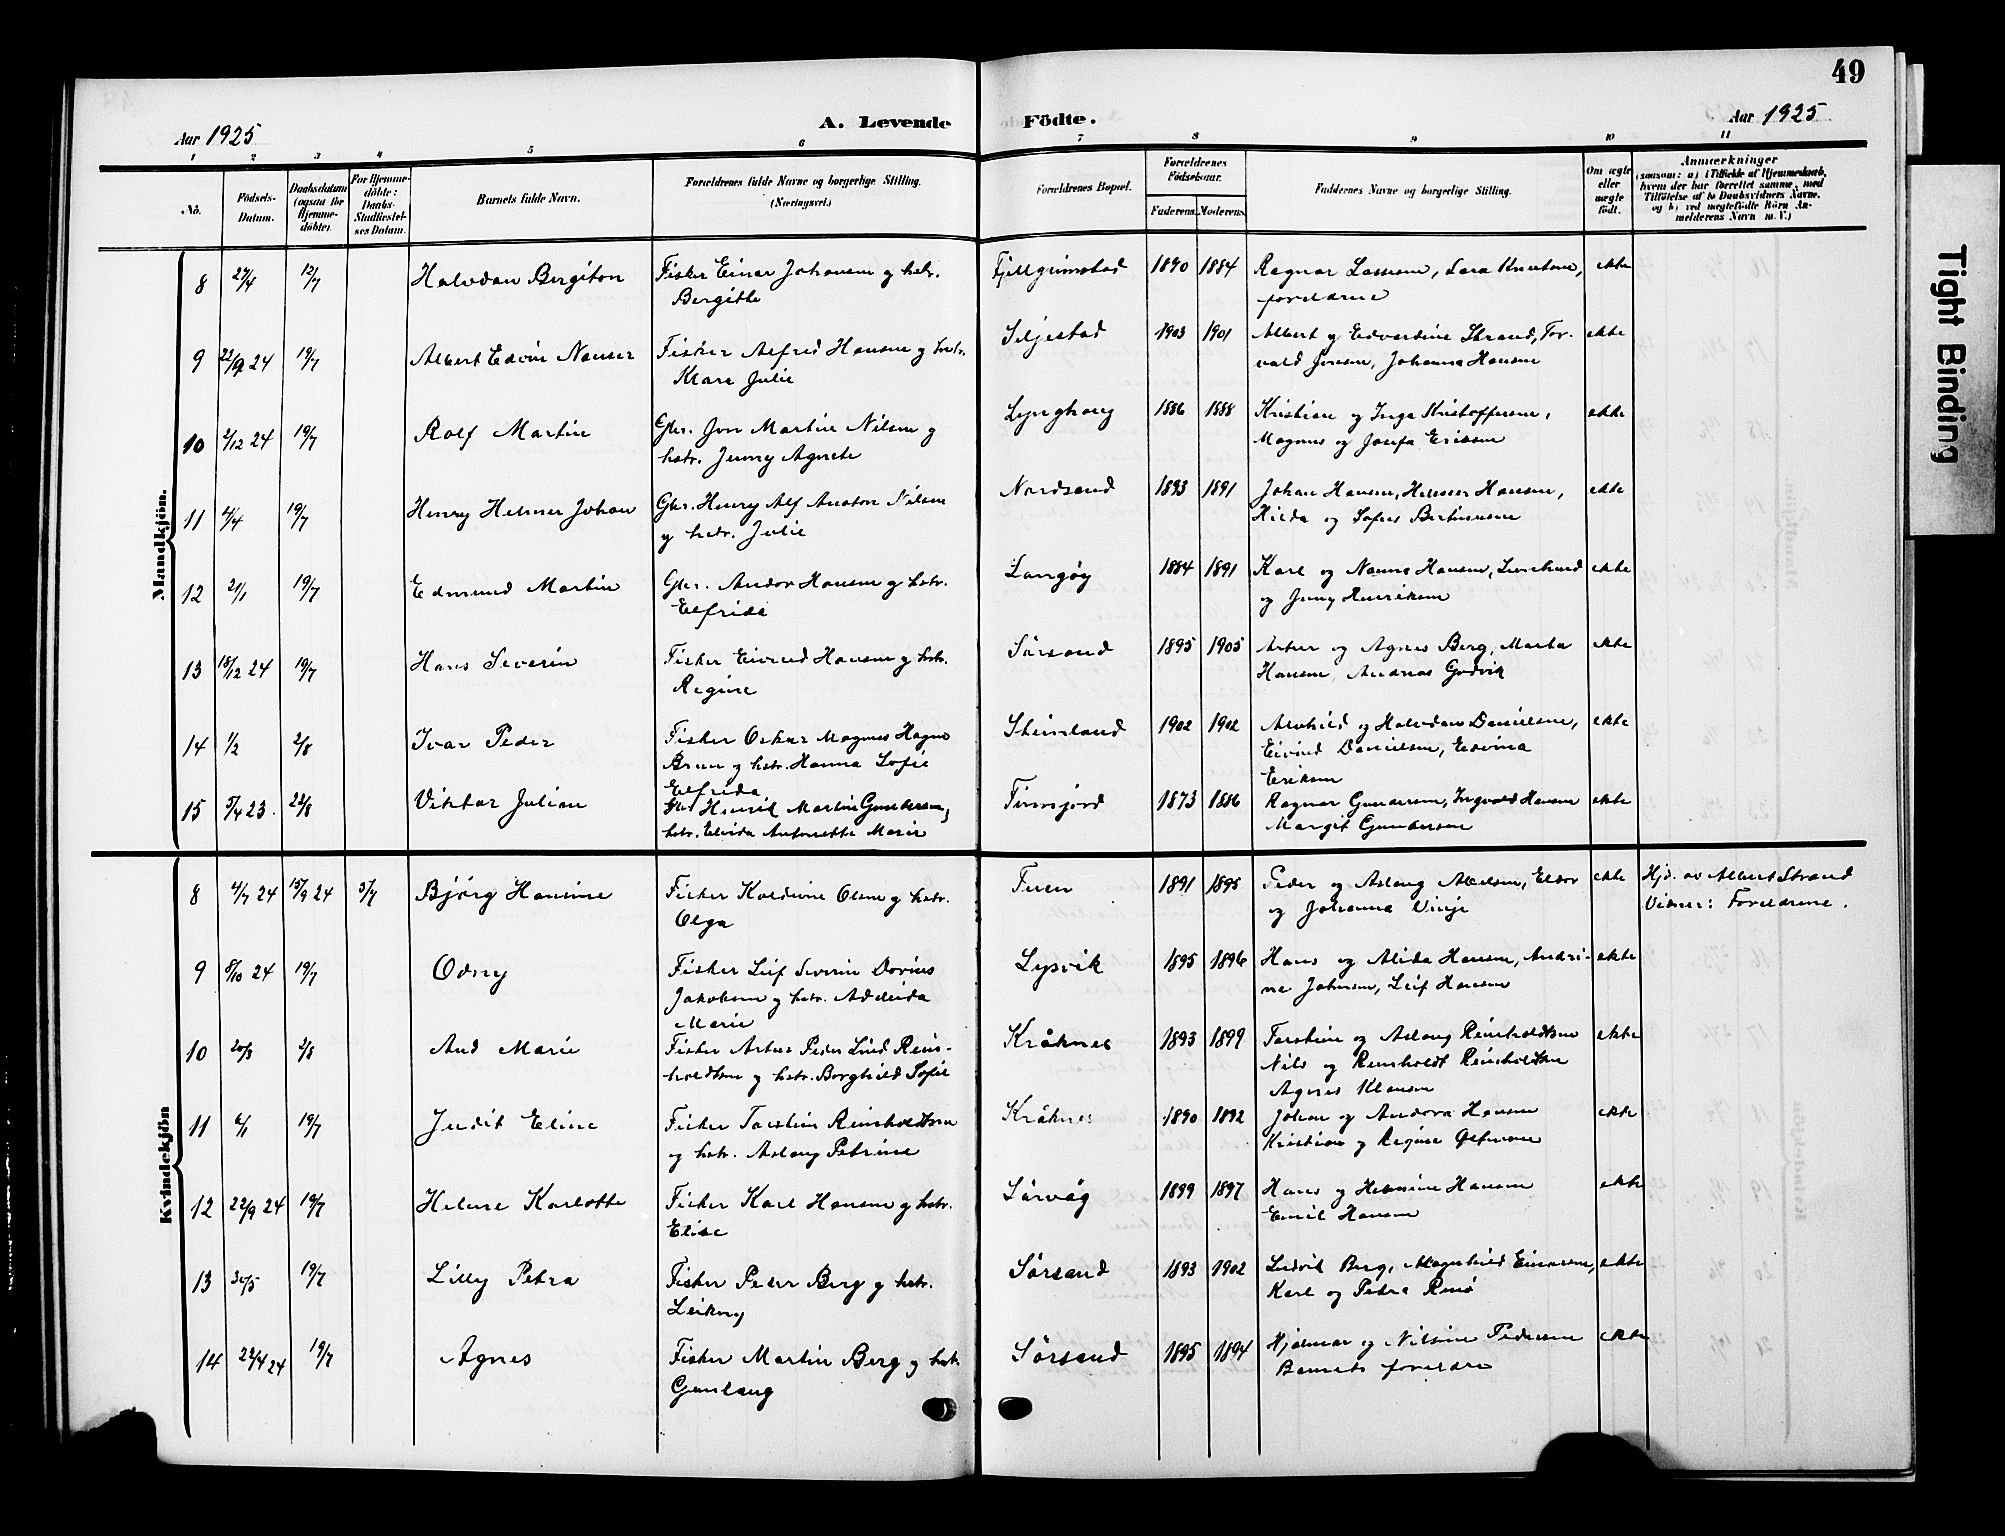 49
Aar 1925
A. Levende
Födte.
Aar 1925
1 2 3 4 5 6 7 8 9 10 11
No.
Födsels-
Datum.
Daabsdatum
(ogsaa for
Hjemme-
döbte).
For Hjemme-
döbte:
Daabs-
Stadfæstel-
ses Datum.
Barnets fulde Navn.
Forældrenes fulde Navne og borgerlige Stilling.
(Næringsvei.)
Forældrenes Bopæl.
Forældrenes
Födselsaar.
Faderens. Moderens.
Faddernes Navne og borgerlige Stilling.
Om ægte
eller
uægte
födt.
Anmærkninger
(saasom: a) i Tilfælde af Hjemmedaab,
hvem der har forrettet samme, med
Tilföielse af to Daabsvidners Navne.
og b) ved uægtefödte Börn An-
melderens Navn m. V.)
Mandkjön.
8 27/4 12/7 Halvdan Bergiton Fisker Einar Johansen og hstr. Fjellgrimstad 1890 1884 Ragnar Lassesen, Lara Knutsen, ekte
Bergitte foreldrene
9 22/9 24 19/7 Albert Edvin Nanser Fisker Alfred Hansen og hstr. Siljestad 1903 1901 Albert og Edvardine Strand, Tor- ekte
Klara Julie vald Jensen, Johanna Hansen
10 2/12 24 19/7 Rolf Martin Gbr. Jon Martin Nilsen og Lynghaug 1886 1888 Kristian og Inga Kristoffersen, ekte
hstr. Jenny Agnete Magnus og Josefa Eriksen
11 4/4 19/7 Henry Helmer Johan Gbr. Henry Alf Anston Nilsen Nordsand 1893 1891 Johan Hansen, Helmer Hansen, ekte
og hstr. Julie Hilda og Sofus Bertinussen
12 21/1 19/7 Edmund Martin Gbr. Andor Hansen og hstr. Langøy 1884 1891 Karl og Nanna Hansen, ekte
Elfrida og Jenny Henriksen
13 18/12 24 19/7 Hans Severin Fisker Eivind Hansen og hstr. Sørsand 1895 1905 Artur og Agnes Berg, Marta ekte
Regine Hansen, Andreas Godvik
14 1/2 2/8 Ivar Peder Fisker Oskar Magnus Hagno Steinland 1902 1902 Alvhild og Halvdan Danielsen, ekte
Brun og hstr. Hanna Sofie Eivind Danielsen, Edvina
Elfrida Eriksen
15 5/4 23. 22/8 Viktor Julian Gbr Henrik Martin Gundersen, Finnfjord 1873 1886 Ragnar Gundersen, Ingvald Hansen ekte
hstr. Elvida Antonette Marie Margit Gundersen
Kvindekjön
8 4/7 24 15/9 24 5/7 Bjørg Hansine Fisker Koldevine Olsen og hstr. Tuen 1891 1895 Peder og Aslaug Abelsen, Eldor ekte Hjd. av Albert Strand
Olga og Johanna Vinje Vidner: Foreldrene.
9 8/10 24 19/7 Odny Fisker Leif Severin Dorius Lysvik 1895 1896 Hans og Alida Hansen, Andri- ekte
Jakobsen og hstr. Adelida ne Johnsen, Leif Hansen
Marie
10 20/3 2/8 Aud Marie Fisker Artur Peder Lind Rein- Kråknes 1893 1899 Torstein og Aslaug Reinholdtsen ekte
holdtsen og hstr. Borghild Sofie Nils og Reinholdt Reinholdtsen
Agnes Klausen
11 6/1 19/7 Judit Eline Fisker Torstein Reinholdtsen Kråknes 1890 1892 Johan og Andora Hansen ekte
og hstr. Aslaug Petrine Kristian og Regine
12 22/9 24 19/7 Helene Karlotte Fisker Karl Hansen og hstr. Sørvåg 1899 1897 Hans og Hermine Hansen ekte
Elise Emil Hansen
13 30/5 19/7 Lilly Petra Fisker Peder Berg og hstr. Sørsand 1893 1902 Ludvik Berg, Magnhild Einarsen, ekte
Leikny Karl og Petra Renø
14 22/4 24 19/7 Agnes Fisker Martin Berg og hstr. Sørsand 1895 1894 Hjalmar og Nilsine Pedersen ekte
Gunlaug Barnets foreldre
Tight Binding